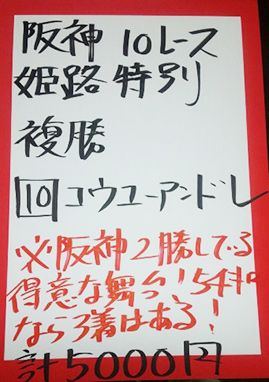 阪神 10レース
姫路特別
複勝
10 コウユーアンドレ
※阪神2勝している
得意な舞台!54キロ
なら3着はある!
計5000円